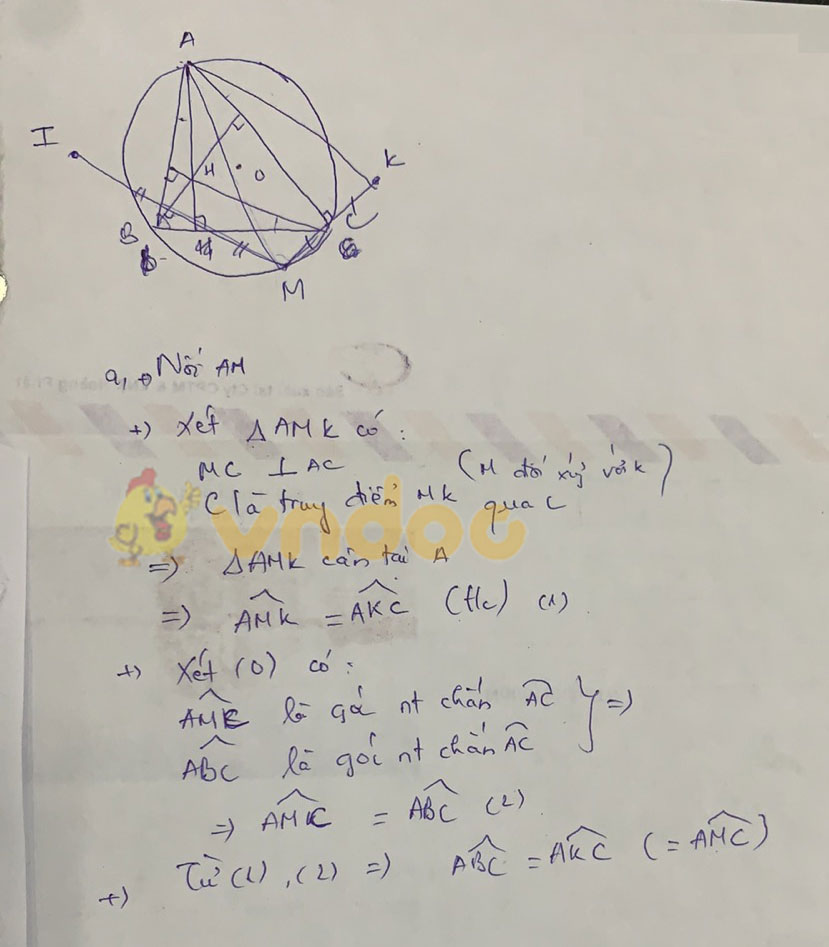 A
I
K
H
O
B
C
M
a, Nối AM
+) Xét ΔAMK có:
MC ⊥ AC (M đối xứng với K
C là trung điểm MK qua C)
=> ΔAMK cân tại A
=> AMK = AKC (t/c) (1)
+) Xét (O) có:
AMC là góc nt chắn AC
ABC là góc nt chắn AC } =>
=> AMC = ABC (2)
+) Từ (1), (2) => ABC = AKC (= AMC)
vndoc